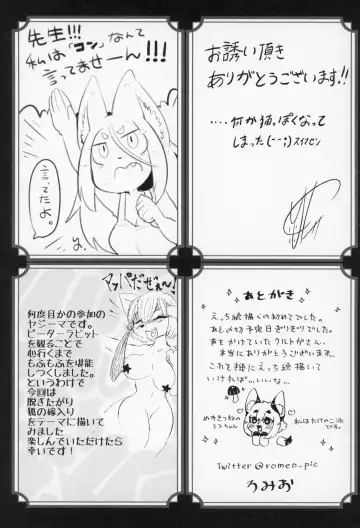 先生!!!
私は「コン」なんて
言ってませーん!!!
言ってたよ。
お誘い頂き
ありがとうございます!!
....何か猫っぽくなって
しまった(--;)スイマセン
マッパだぜぇ〜!
何度目かの参加の
ヤジーマです。
ピーターラビット
を観ることで
心行くまで
もふもふを堪能
しつくしました。
というわけで
今回は
脱ぎたがり
狐の嫁入り
をテーマに描いて
みました
楽しんでいただけたら
幸いです!
あとがき
えっち絵描くの初めてでした。
あと〆切予定日ぎりぎりでした。
声をかけていたクルトがさん、
本当にありがとうございます...
これを機にえっち絵描いて
いければ...いいな...
めすきつねの
ココちゃん
私はたけのこ派
です。
Twitter@romeo_pic
ろみお